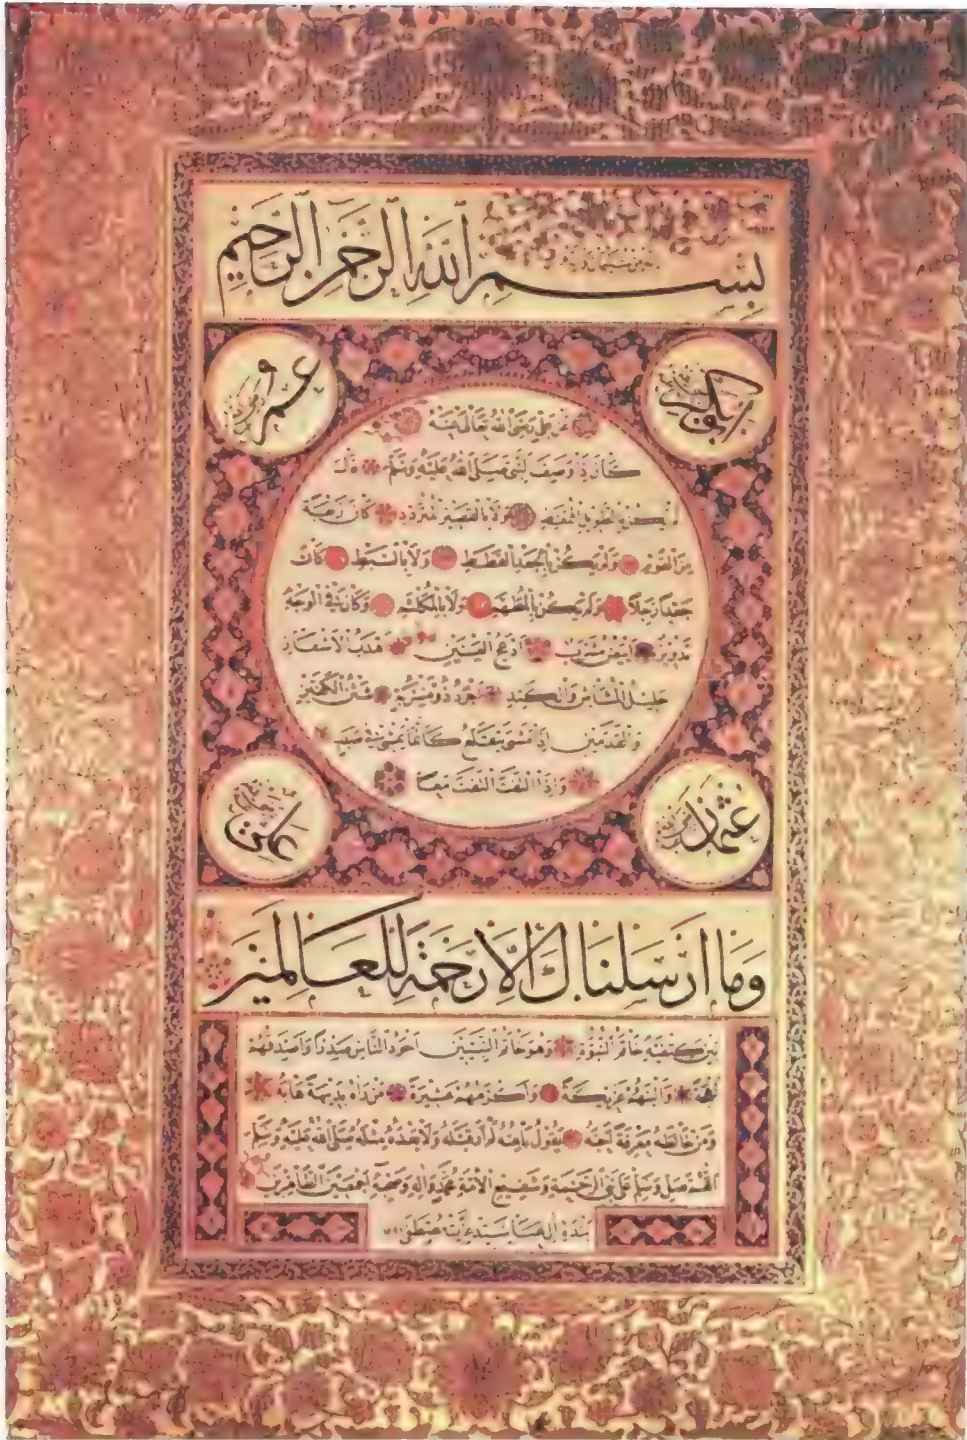 بِسْمِ اللَّهِ الرَّحْمٰنِ الرَّحِيمِ
ابو بكر
عمر
عن علي رضي الله تعالى عنه
كان اذا وصف النبي صلى الله عليه وسلم قال
لم يكن بالطويل الممغط ولا بالقصير المتردد كان ربعة
من القوم ولم يكن بالجعد القطط ولا بالسبط كان
جعدا رجلا ولم يكن بالمطهم ولا بالمكلثم وكان في الوجه
تدوير ابيض مشرب ادعج العينين هدب الاشفار
جليل المشاش والكتد اجرد ذو مسربة شثن الكفين
والقدمين اذا مشى يتقلع كانما يمشي في صبب
واذا التفت التفت معا
عثمان
علي
وَمَا اَرْسَلْنَاكَ اِلَّا رَحْمَةً لِلْعَالَمِينَ
بين كتفيه خاتم النبوة وهو خاتم النبيين اجود الناس صدرا واصدقهم
لهجة والينهم عريكة واكرمهم عشيرة من راه بديهة هابه
ومن خالطه معرفة احبه يقول ناعته لم ار قبله ولا بعده مثله صلى الله عليه وسلم
اللهم صل وسلم على نبي الرحمة وشفيع الامة محمد واله وصحبه اجمعين الطاهرين